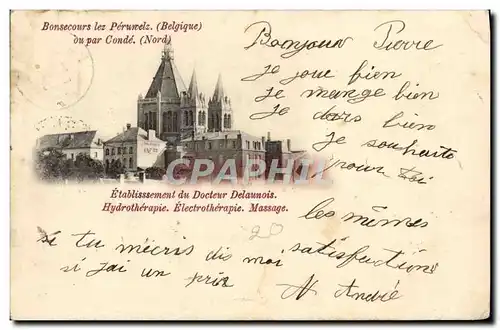 Bonsecours lez Péruwelz. (Belgique)
ou par Condé. (Nord)
Bonjour Pierre
je joue bien
je mange bien
Je dors bien
Je souhaite
pour toi
CPARAMA
Établissement du Docteur Delaunois.
Hydrothérapie. Électrothérapie. Massage.
les mêmes
satisfactions
si tu m'écris dis moi
si j'ai un prix
André